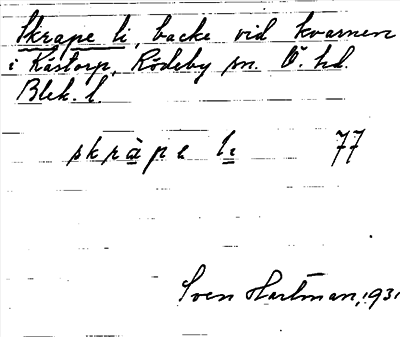 Skrape li, backe vid kvarnen
i Kåstorp, Rödeby sn. Ö. hd.
Blek. l.
skràpe li 77
Sven Hartman, 1931